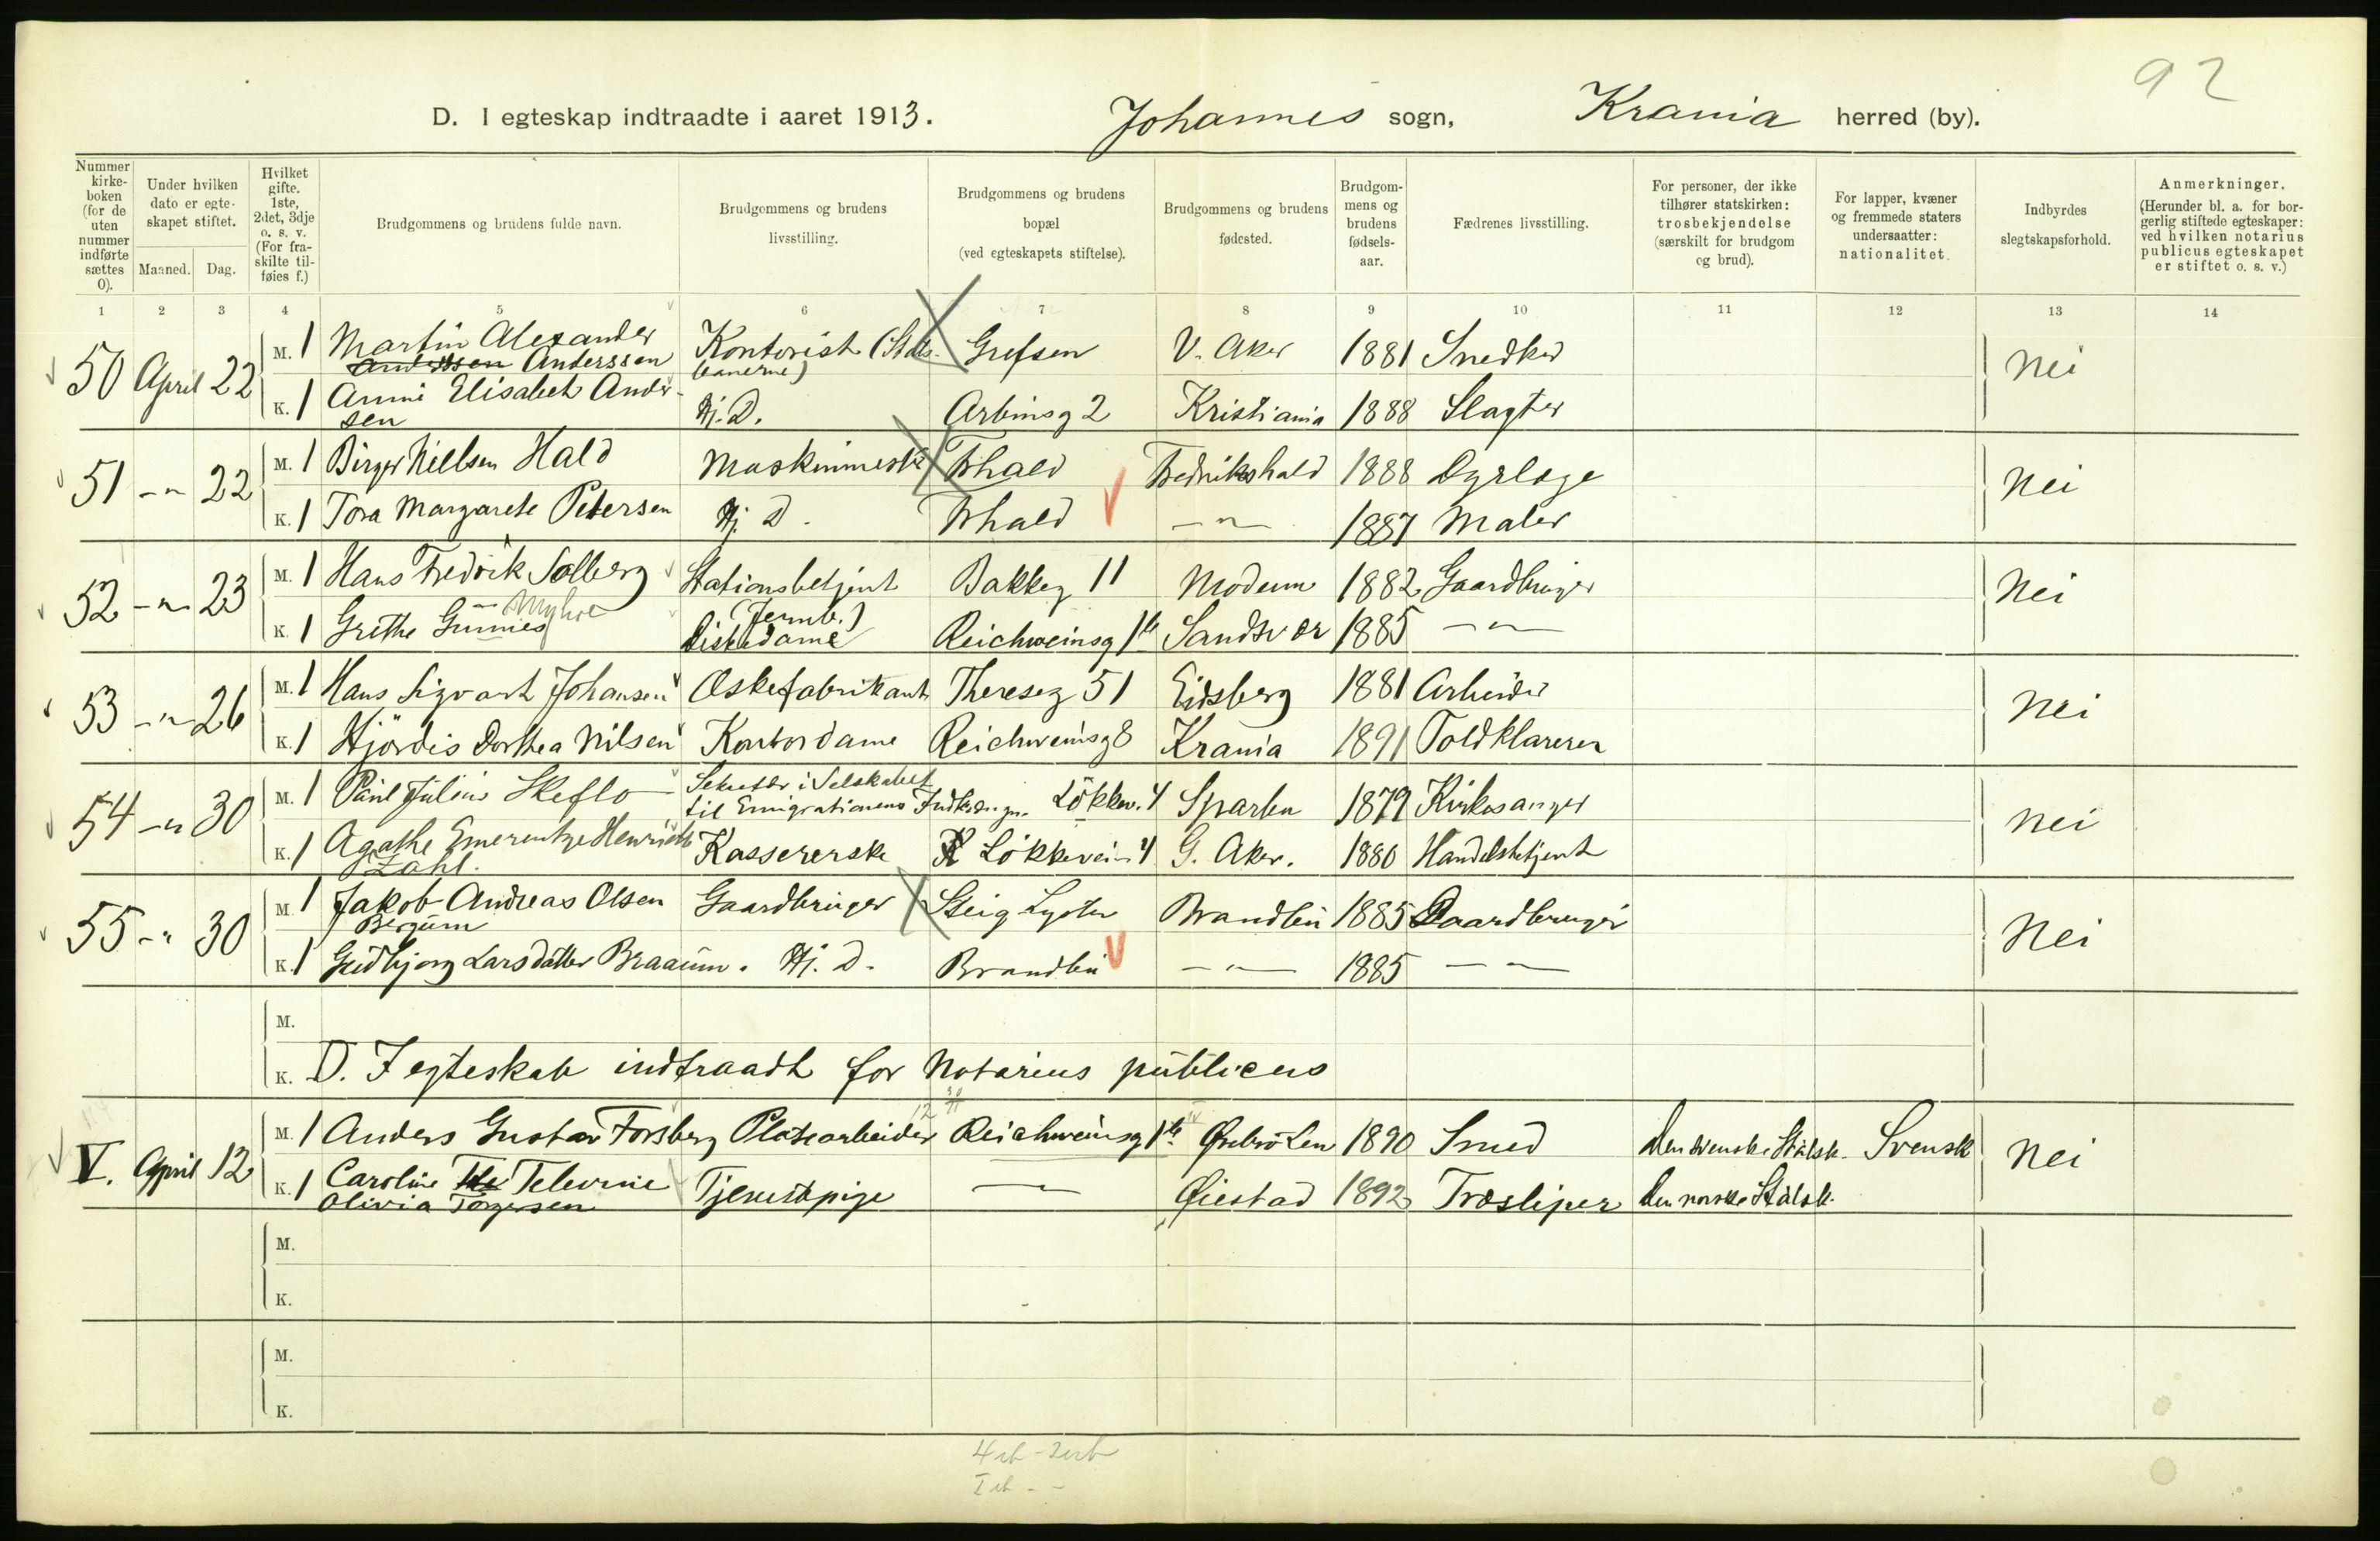 92
D. I egteskap indtraadte i aaret 1913. Johannes sogn, Krania herred (by).
Nummer kirke-boken (for de uten nummer indførte sættes 0).
Under hvilken dato er egte-skapet stiftet.
Maaned. Dag.
Hvilket gifte. 1ste, 2det, 3dje o. s. v. (For fra-skilte til-føies f.)
Brudgommens og brudens fulde navn.
Brudgommens og brudens livsstilling.
Brudgommens og brudens bopæl (ved egteskapets stiftelse).
Brudgommens og brudens fødested.
Brudgom-mens og brudens fødsels-aar.
Fædrenes livsstilling.
For personer, der ikke tilhører statskirken: trosbekjendelse (særskilt for brudgom og brud).
For lapper, kvæner og fremmede staters undersaatter: nationalitet.
Indbyrdes slegtskapsforhold.
Anmerkninger. (Herunder bl. a. for bor-gerlig stiftede egteskaper: ved hvilken notarius publicus egteskapet er stiftet o. s. v.)
1 2 3 4 5 6 7 8 9 10 11 12 13 14
50 April 22 M. 1 Martin Alexander Anderssen Anderssen Kontorist (Stats-banerne) Grefsen V. Aker 1881 Snedker Nei
K. 1 Anni Elisabeth Ander-sen Hj. D. Arbinsg 2 Kristiania 1888 Slagter
51 -"- 22 M. 1 Birger Nillsen Hald Maskinmest. Frhald Fredrikshald 1888 Dyrlæge Nei
K. 1 Tora Margarete Petersen Hj. D. Frhald -"- 1887 Maler
52 -"- 23 M. 1 Hans Fredrik Solberg Stationsbetjent (Jernb.) Bakkeg 11 Modum 1882 Gaardbruger Nei
K. 1 Grethe Gunnes Myhre Diskedame Reichweinsg 1b Sandsvær 1885 -"-
53 -"- 26 M. 1 Hans Sigvart Johansen Æskefabrikant Thereseg 51 Eidsberg 1881 Arbeider Nei
K. 1 Hjördis Dorthea Nilsen Kontordame Reichweinsg 8 Krania 1891 Toldklarerer
54 -"- 30 M. 1 Paul Julius Skeflo Sekretær i Selskabet til Emigrationens Indskr. Lökkev. 4 Sparbu 1879 Kirkesanger Nei
K. 1 Agathe Emerentze Henriette Zahl. Kassererske Lökkevein 4 G. Aker. 1880 Handelsbetjent
55 -"- 30 M. 1 Jakob Andreas Olsen Bergum Gaardbruger Steig Lyster Brandbu 1885 Gaardbruger Nei
K. 1 Gudbjorg Larsdatter Braaum. Hj. D. Brandbu -"- 1885 -"-
M.
K. D. I egteskab indtraadt for Notarius publicus
V. April 12 M. 1 Anders Gustav Forsberg Platearbeider Reichweinsg 1b Ørebrö Len 1890 Smed Den svenske Statsk. Svensk Nei
K. 1 Caroline Televine Olivia Torgersen Tjenestpige -"- Øiestad 1892 Træsliper Den norske Statsk.
M.
K.
M.
K.